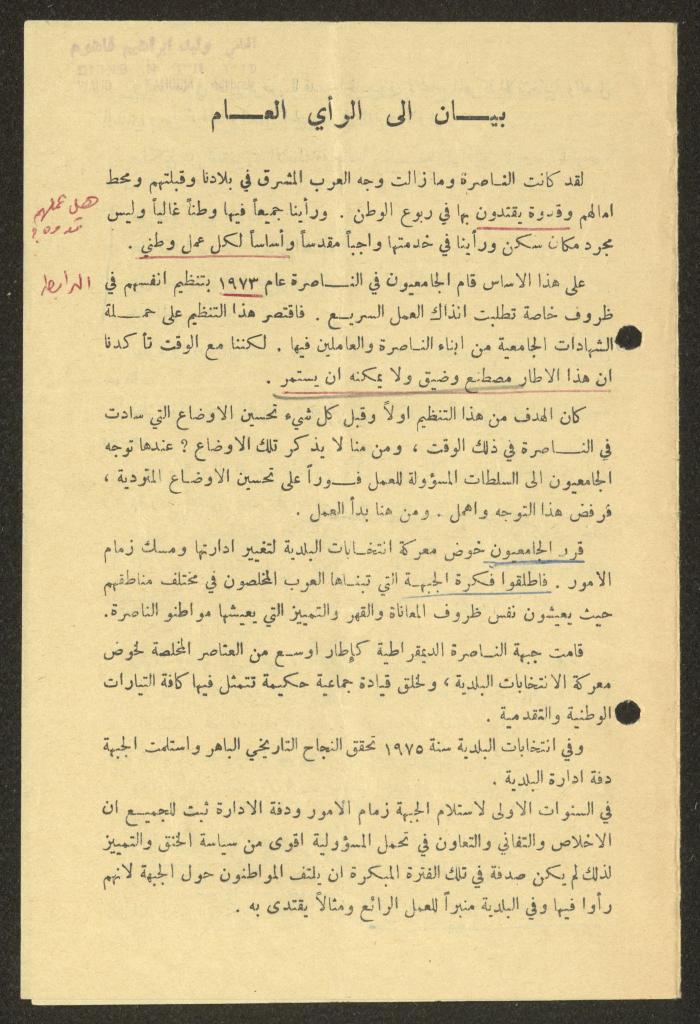 بيـــان الى الرأي العـــام
لقد كانت الناصرة وما زالت وجه العرب المشرق في بلادنا وقبلتهم ومحط
امالهم وقدوة يقتدون بها في ربوع الوطن . ورأينا جميعاً فيها وطناً غالياً وليس
مجرد مكان سكن ورأينا في خدمتها واجباً مقدساً وأساساً لكل عمل وطني .
هل عملهم
قدوه؟
على هذا الاساس قام الجامعيون في النـــاصرة عام ١٩٧٣ بتنظيم انفسهم في
الرابطة
ظروف خاصة تطلبت انذاك العمل السريـع . فاقتصر هذا التنظيم على حمـــلة
الشهادات الجامعية من ابناء الناصرة والعاملين فيها . لكننا مع الوقت تأكدنا
ان هذا الاطار مصطنع وضيق ولا يمكنه ان يستمر .
كان الهدف من هذا التنظيم اولاً وقبل كل شيء تحسين الاوضاع التي سادت
في النـــاصرة في ذلك الوقت ، ومن منا لا يذكر تلك الاوضاع ؟ عندها توجه
الجامعيون الى السلطات المسؤولة للعمل فـــوراً على تحسين الاوضاع المتردية ،
فرفض هذا التوجه واهمل . ومن هنا بدأ العمل .
قرر الجامعيون خوض معركة انتخابات البلدية لتغيير ادارتها ومسك زمام
الامور . فاطلقوا فكرة الجبهـة التي تبنـاها العرب المخلصون في مختلف مناطقهم
حيث يعيشون نفس ظروف المعاناة والقهر والتمييز التي يعيشها مواطنو الناصرة.
قامت جبهة النـاصرة الديمقراطية كإطار اوسـع من العناصر المخلصة لخوض
معركة الانتخابات البلدية ، ولخلق قيادة جماعية حكيمة تتمثل فيها كافة التيارات
الوطنية والتقدمية .
وفي انتخابات البلدية سنة ١٩٧٥ تحقق النجاح التاريخي الباهر واستلمت الجبهة
دفة ادارة البلدية .
في السنوات الاولى لاستلام الجبهة زمام الامور ودفة الادارة ثبت للجميـع ان
الاخلاص والتفاني والتعاون في تحمل المسؤولية اقوى من سياسة الخنق والتمييز
لذلك لم يكن صدفة في تلك الفترة المبكرة ان يلتف المواطنون حول الجبهة لانهم
رأوا فيها وفي البلدية منبراً للعمل الرائع ومثالاً يقتدى به .